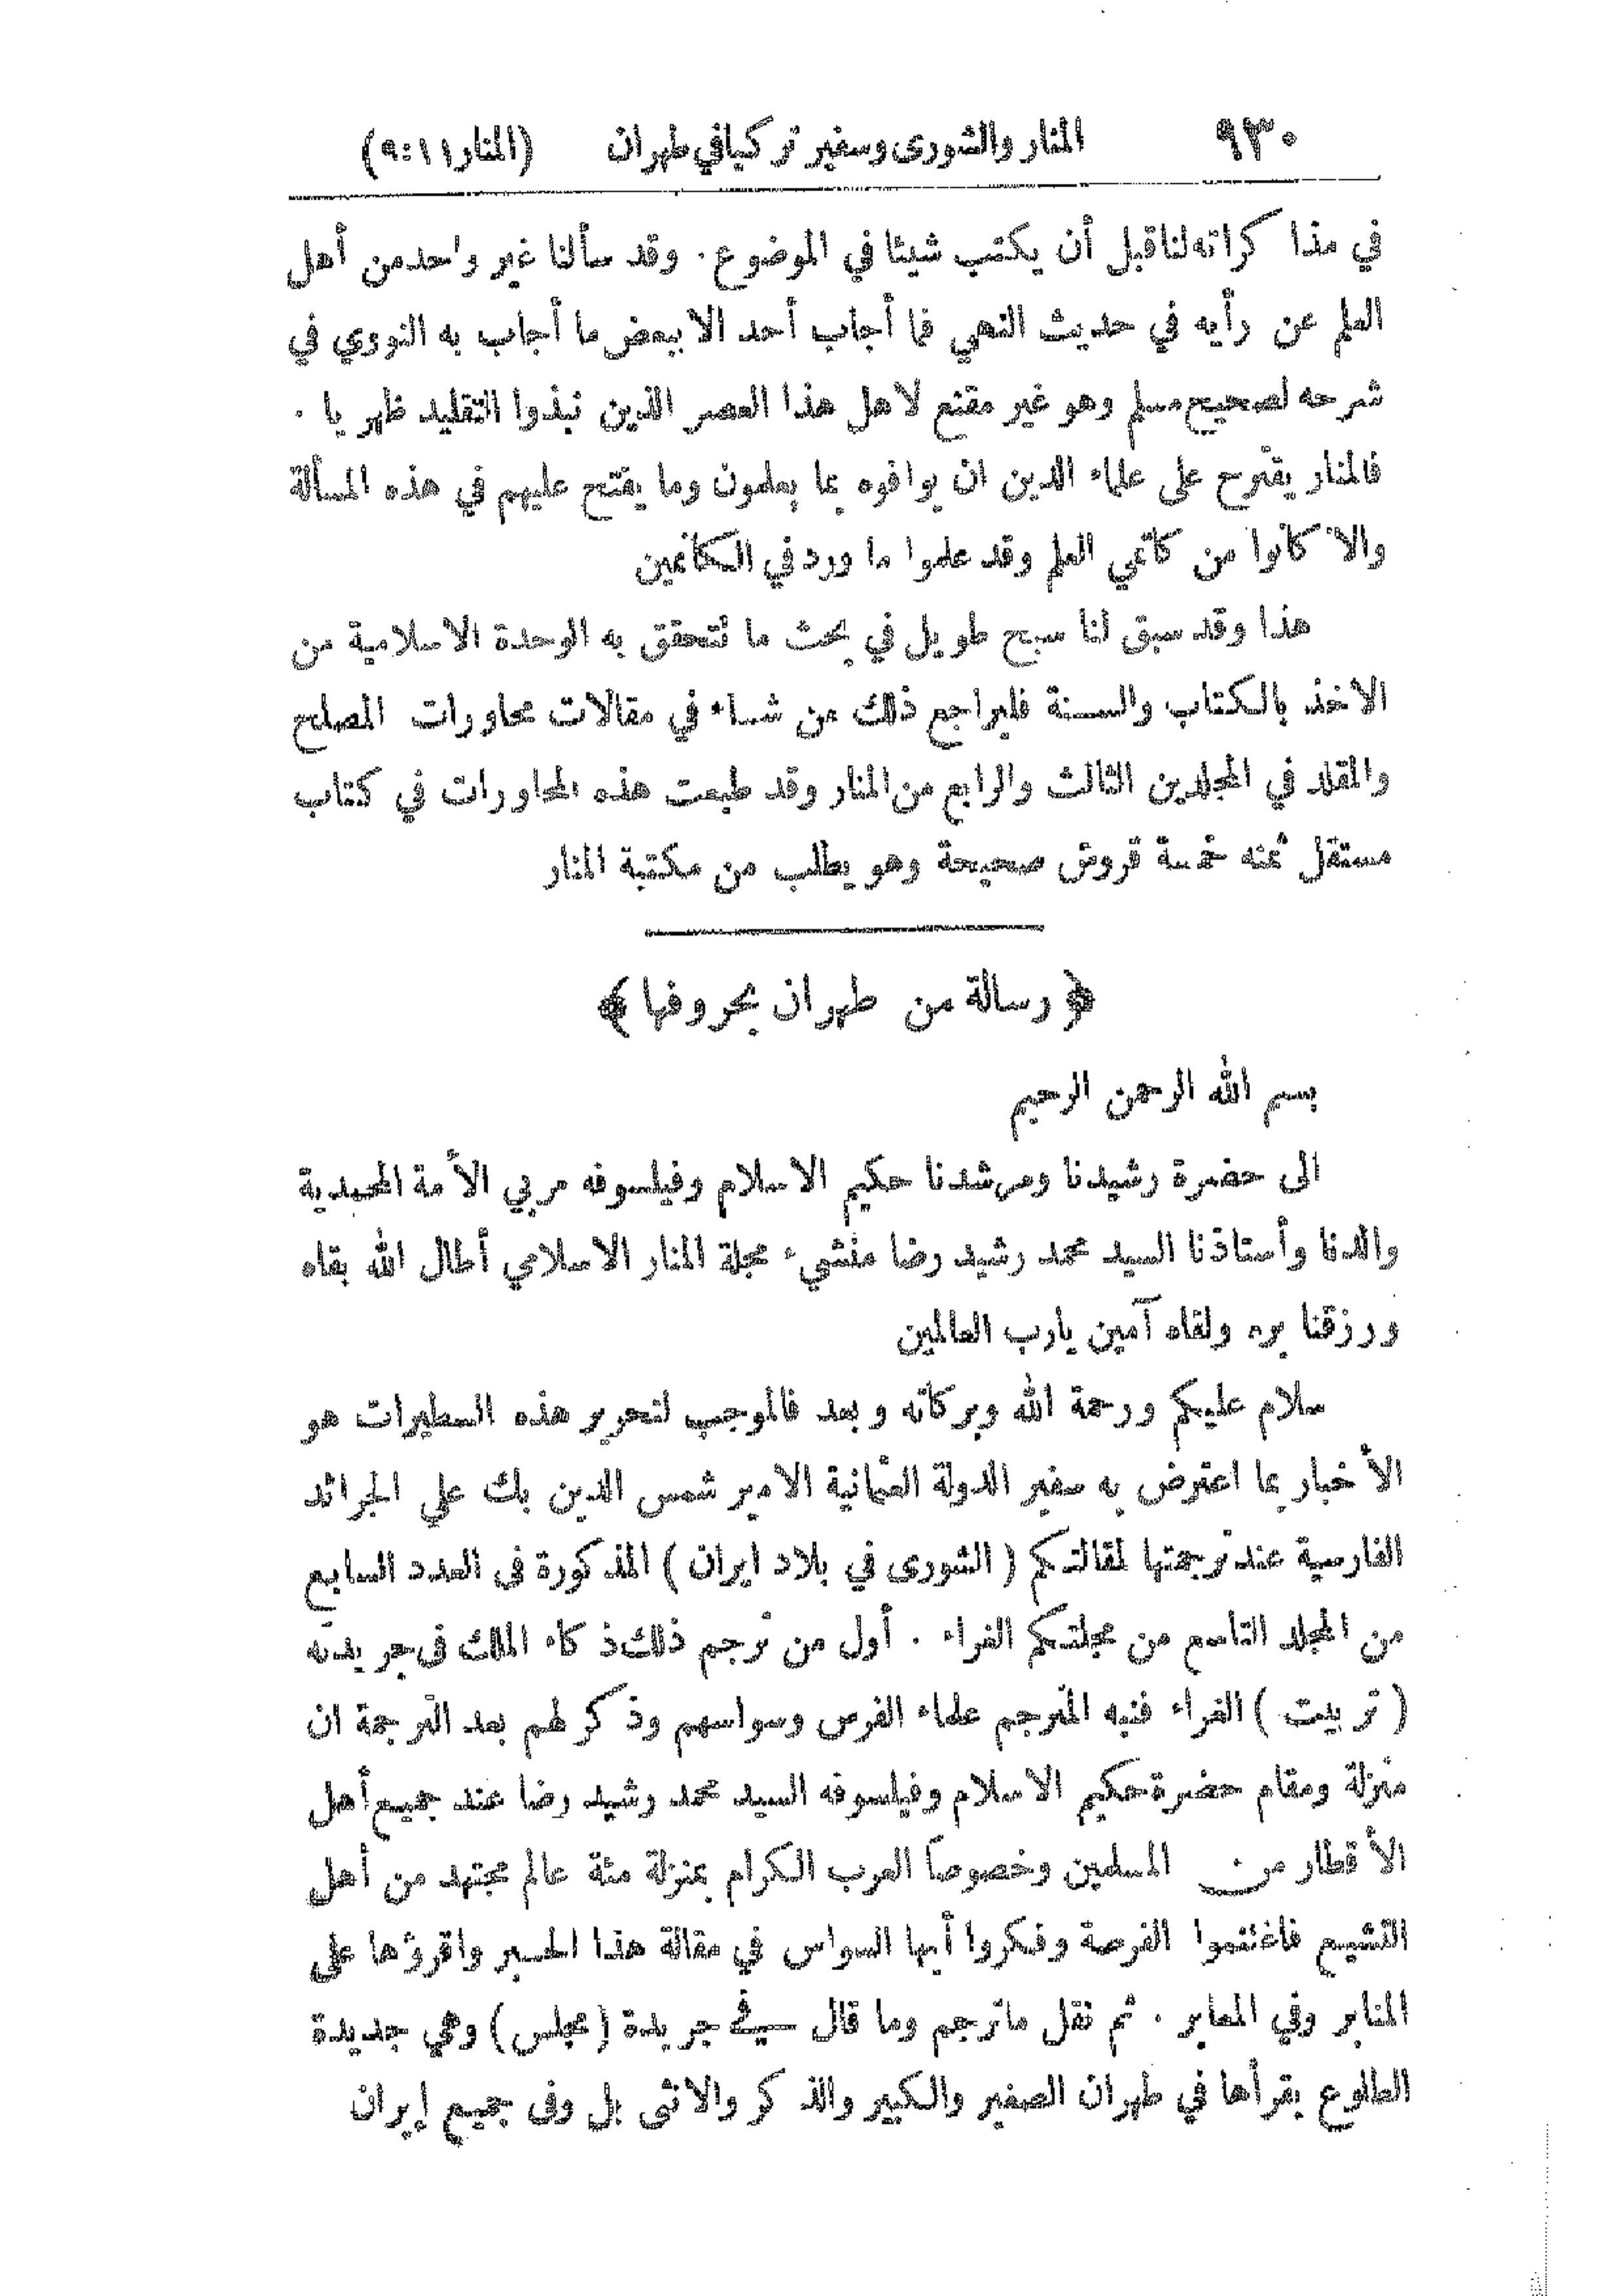 ٩٣٠ المنار والشورى وسفير تركيا في طهران (المنار ١١ : ٩)
في مذا كراته لنا قبل أن يكتب شيئا في الموضوع . وقد سألنا غير واحد من أهل
العلم عن رأيه في حديث النهي فما أجاب أحد الا ببعض ما أجاب به النووي في
شرحه لصحيح مسلم وهو غير مقنع لاهل هذا العصر الذين نبذوا التقليد ظهريا .
فالمنار يقترح على علماء الدين ان يوافوه بما يعلمون وما يفتح عليهم في هذه المسألة
والا كانوا من كاتمي العلم وقد علموا ما ورد في الكاتمين
هذا وقد سبق لنا سبح طويل في بحث ما تتحقق به الوحدة الاسلامية من
الاخذ بالكتاب والسنة فليراجع ذلك من شاء في مقالات محاورات المصلح
والمقلد في المجلدين الثالث والرابع من المنار وقد طبعت هذه المحاورات في كتاب
مستقل ثمنه خمسة قروش صحيحة وهو يطلب من مكتبة المنار
﴿ رسالة من طهران بحروفها ﴾
بسم الله الرحمن الرحيم
الى حضرة رشيدنا ومرشدنا حكيم الاسلام وفيلسوفه مربي الأمة المحمدية
والدنا وأستاذنا السيد محمد رشيد رضا منشيء مجلة المنار الاسلامي أطال الله بقاه
ورزقنا بره ولقاه آمين يارب العالمين
سلام عليكم ورحمة الله وبركاته وبعد فالموجب لتحرير هذه السطيرات هو
الأخبار بما اعترض به سفير الدولة العثمانية الامير شمس الدين بك على الجرائد
الفارسية عند ترجمتها لمقالتكم ( الشورى في بلاد ايران ) المذكورة فى العدد السابع
من المجلد التاسع من مجلتكم الغراء . أول من ترجم ذلك ذكاء الملك فى جريدته
( تربيت ) الغراء فنبه المترجم علماء الفرس وسواسهم وذكر لهم بعد الترجمة ان
منزلة ومقام حضرة حكيم الاسلام وفيلسوفه السيد محمد رشيد رضا عند جميع أهل
الأقطار من المسلمين وخصوصاً العرب الكرام بمنزلة مئة عالم مجتهد من أهل
التشيع فاغتنموا الفرصة وفكروا أيها السواس في مقالة هذا الحبر واقرؤها على
المنابر وفي المعابر . ثم نقل ماترجم وما قال في جريدة (مجلس) وهي جديدة
الطلوع يقرأها في طهران الصغير والكبير والذكر والانثى بل وفى جميع إيران